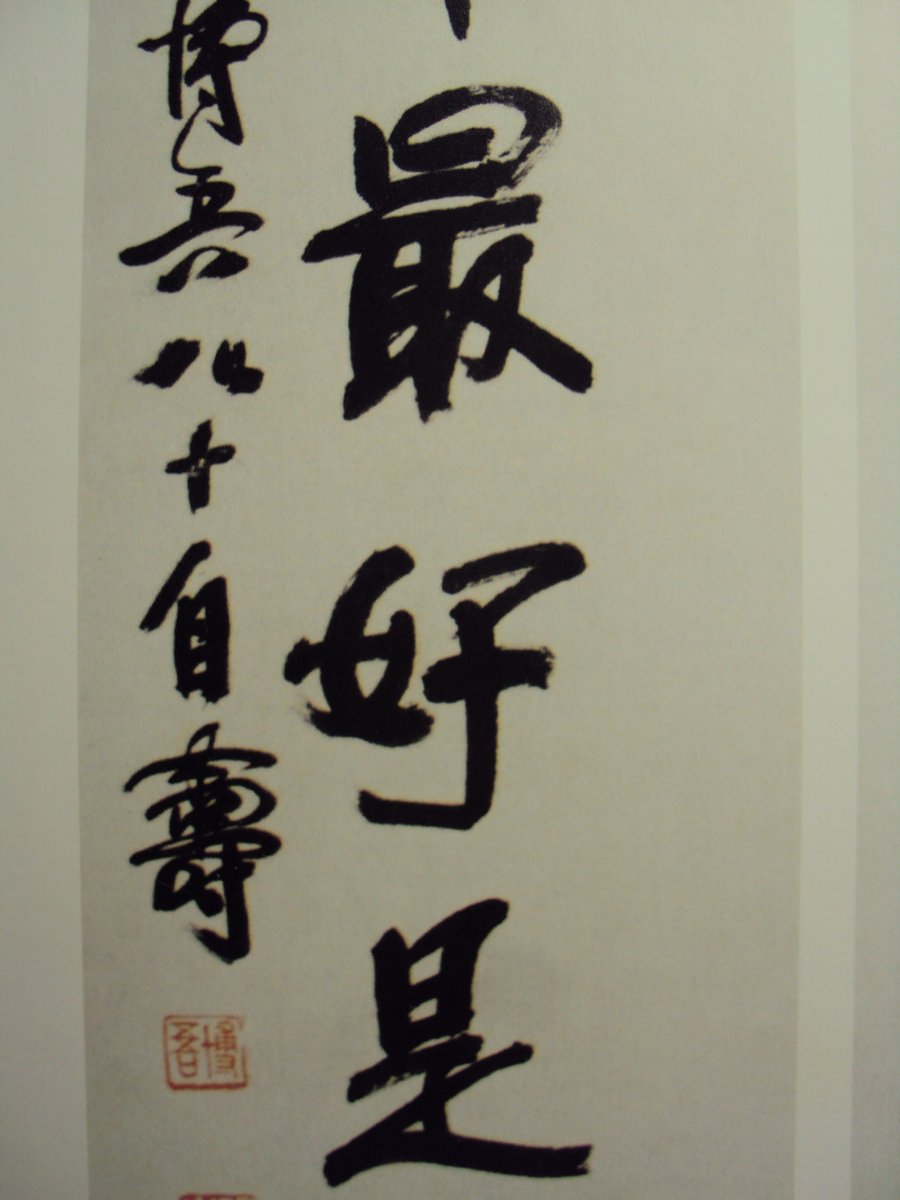 最好是
博吾八十自壽
博吾